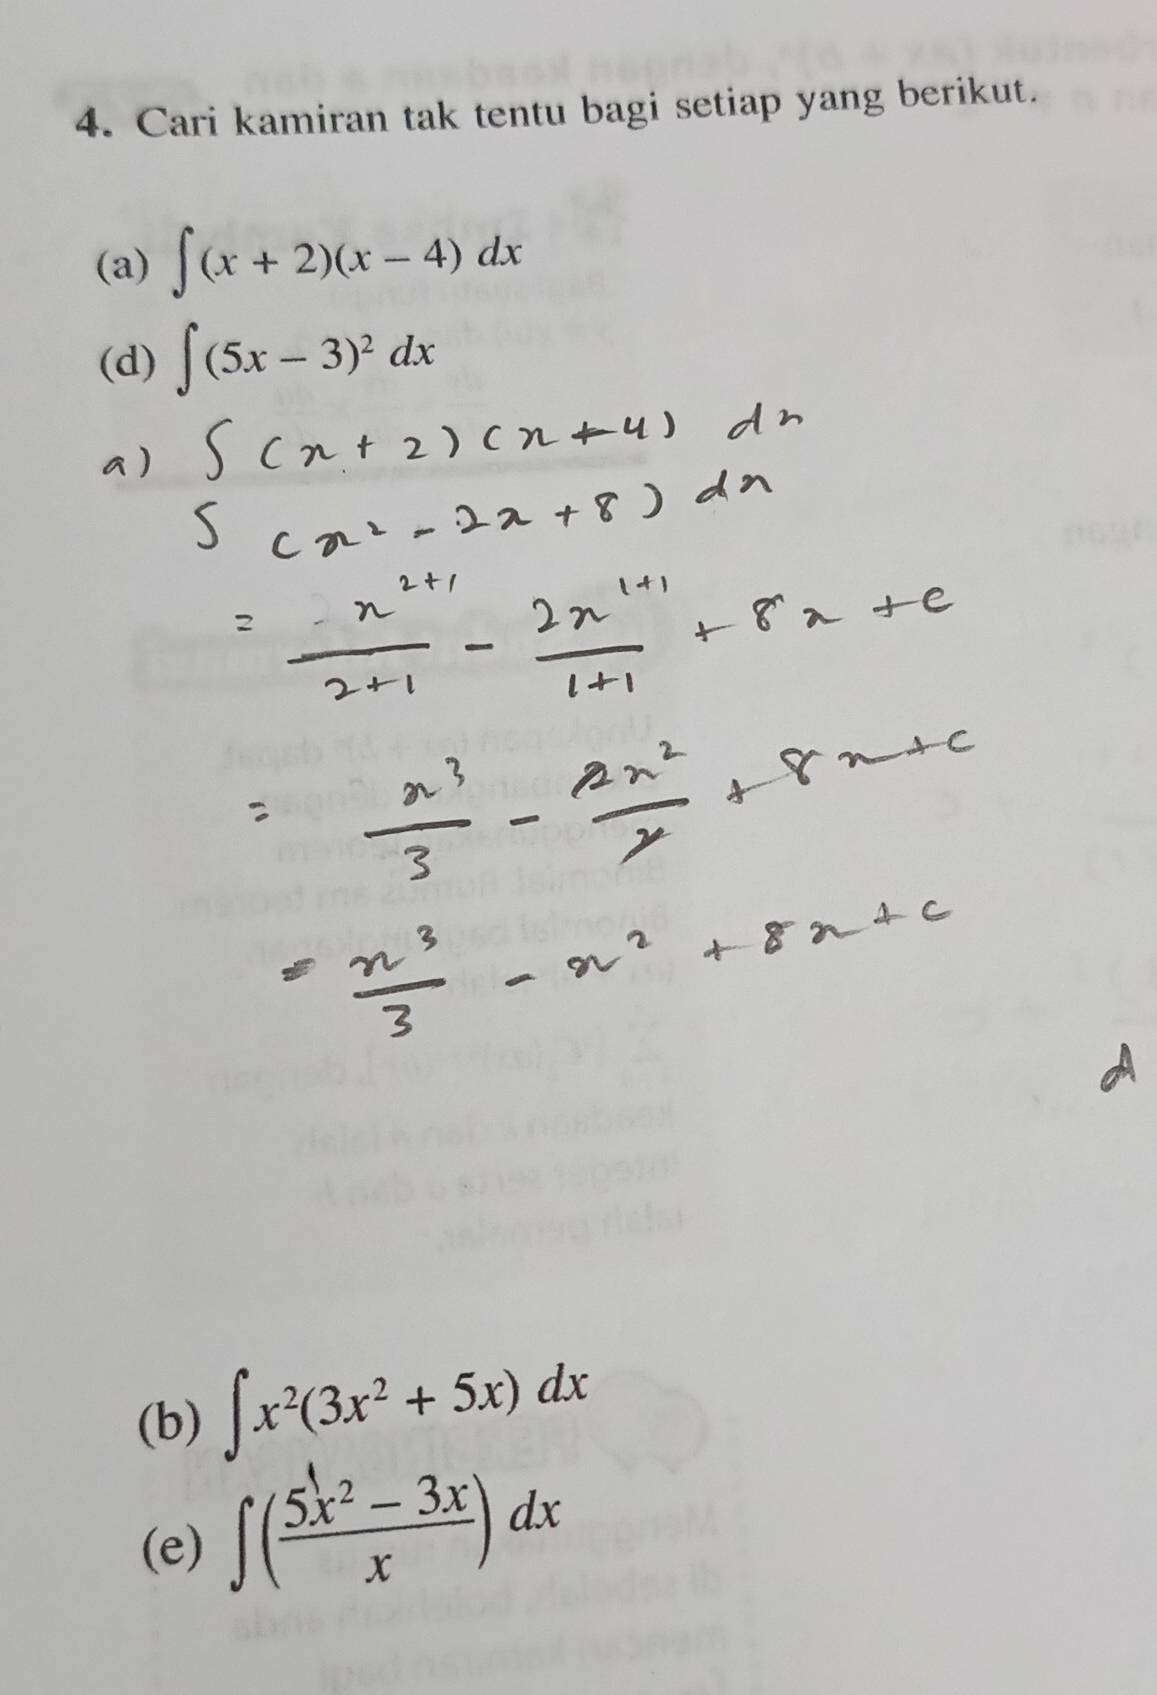 4. Cari kamiran tak tentu bagi setiap yang berikut.
(a) ∫(x + 2)(x – 4) dx
(d) ∫(5x – 3)² dx
a) ∫ (x + 2)(x + 4) dx
∫ (x² - 2x + 8) dx
= x²⁺¹/2+1 - 2x¹⁺¹/1+1 + 8x + c
= x³/3 - 2x²/2 + 8x + c
= x³/3 - x² + 8x + c
(b) ∫x²(3x² + 5x) dx
(e) ∫(5x² – 3x/x) dx